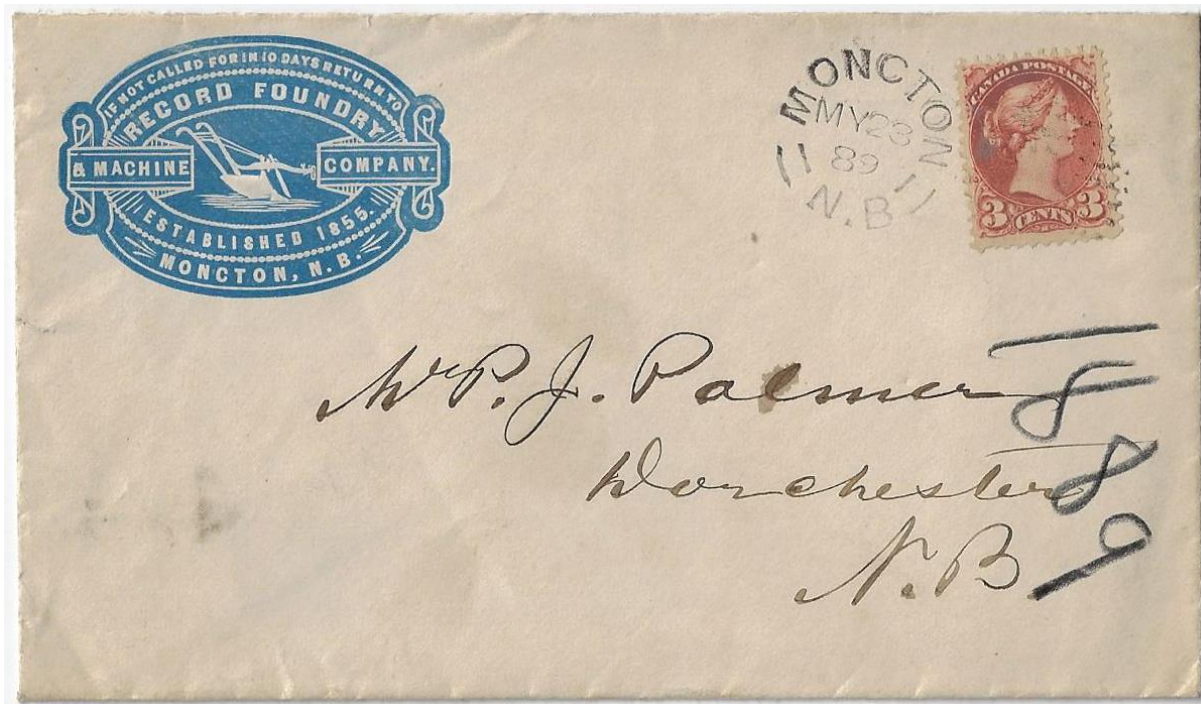 IF NOT CALLED FOR IN 10 DAYS RETURN TO
RECORD FOUNDRY
& MACHINE COMPANY.
ESTABLISHED 1855.
MONCTON, N. B.
MONCTON
MY 23
89
N.B
CANADA POSTAGE
3 CENTS 3
Mr P. J. Palmer
Dorchester
N.B.
1889